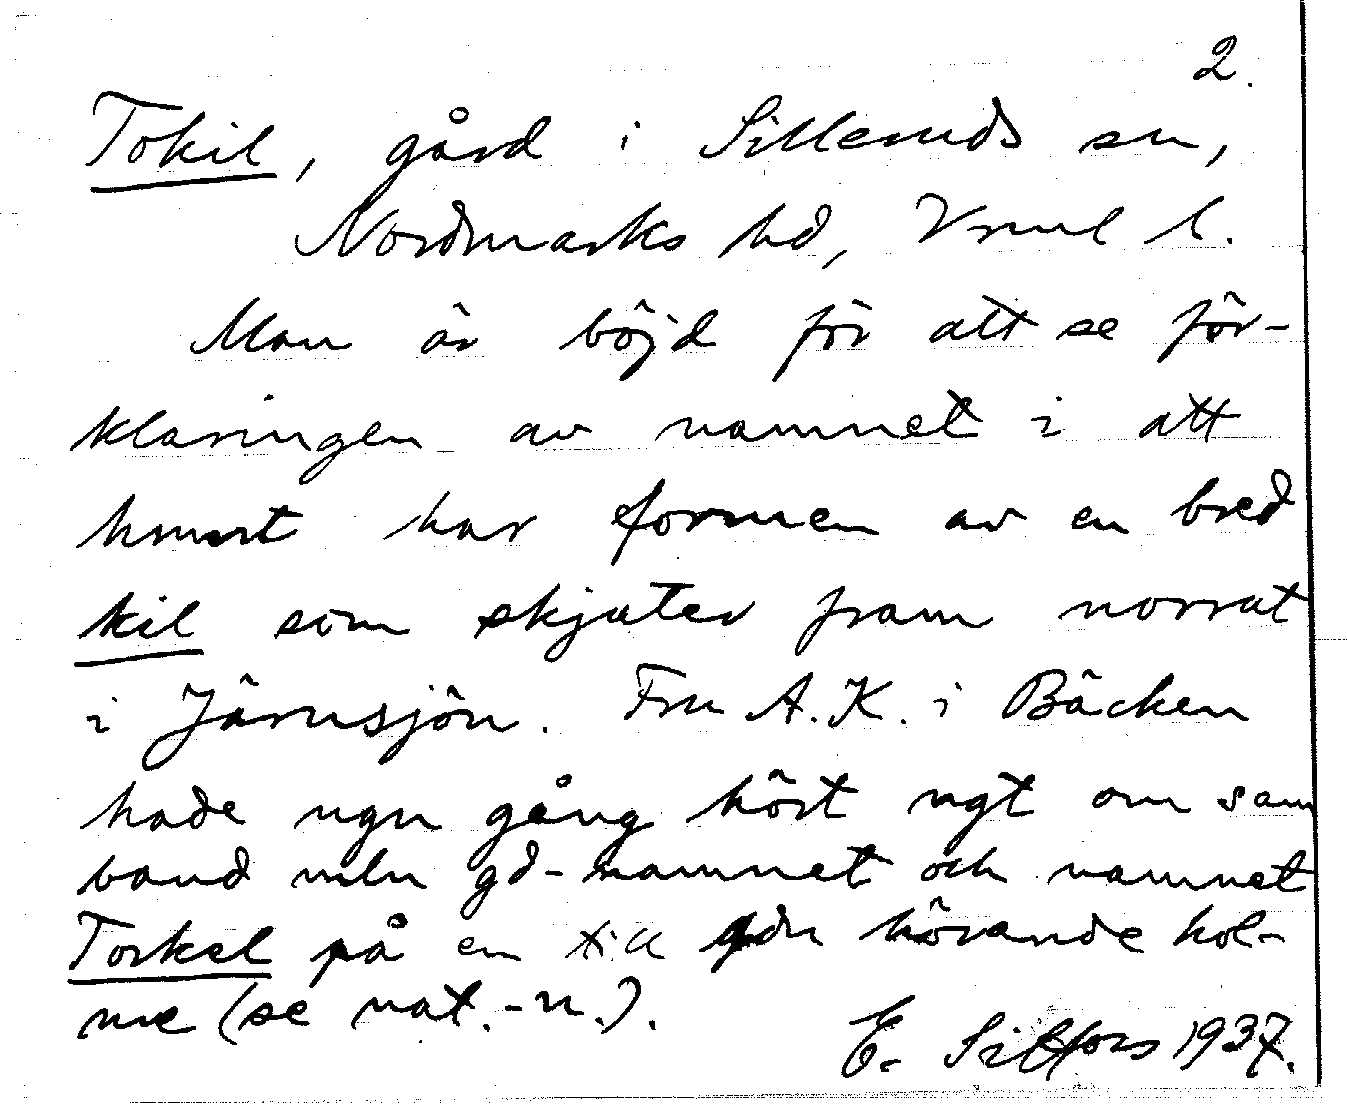 2.
Tokil, gård i Silleruds sn,
Nordmarks hd, Vrml l.
Man är böjd för att se för-
klaringen av namnet i att
hmnt har formen av en bred
kil som skjuter fram norrut
i Järnsjön. Fru A.K. i Bäcken
hade ngn gång hört ngt om sam
band mln gd-namnet och namnet
Torkel på en till gdn hörande hol-
me (se nat.-n.).
E. Sillfors 1937.